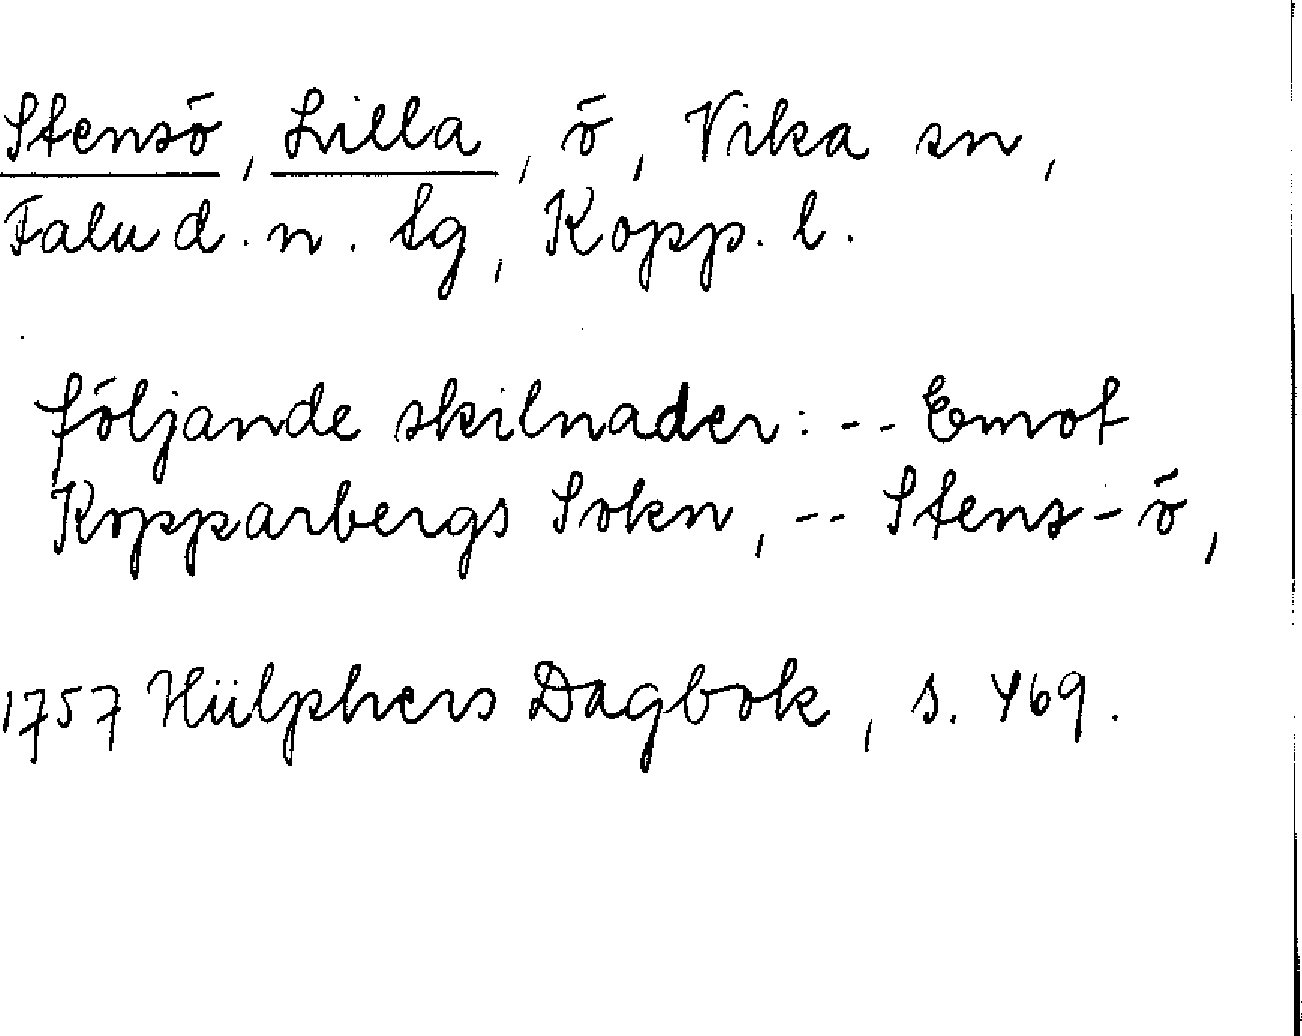 Stensö, Lilla, ö, Vika sn,
Falu d. n. tg, Kopp. l.
följande skilnader: -- Emot
Kopparbergs Sokn, -- Stens-ö,
1757 Hülphers Dagbok, s. 469.